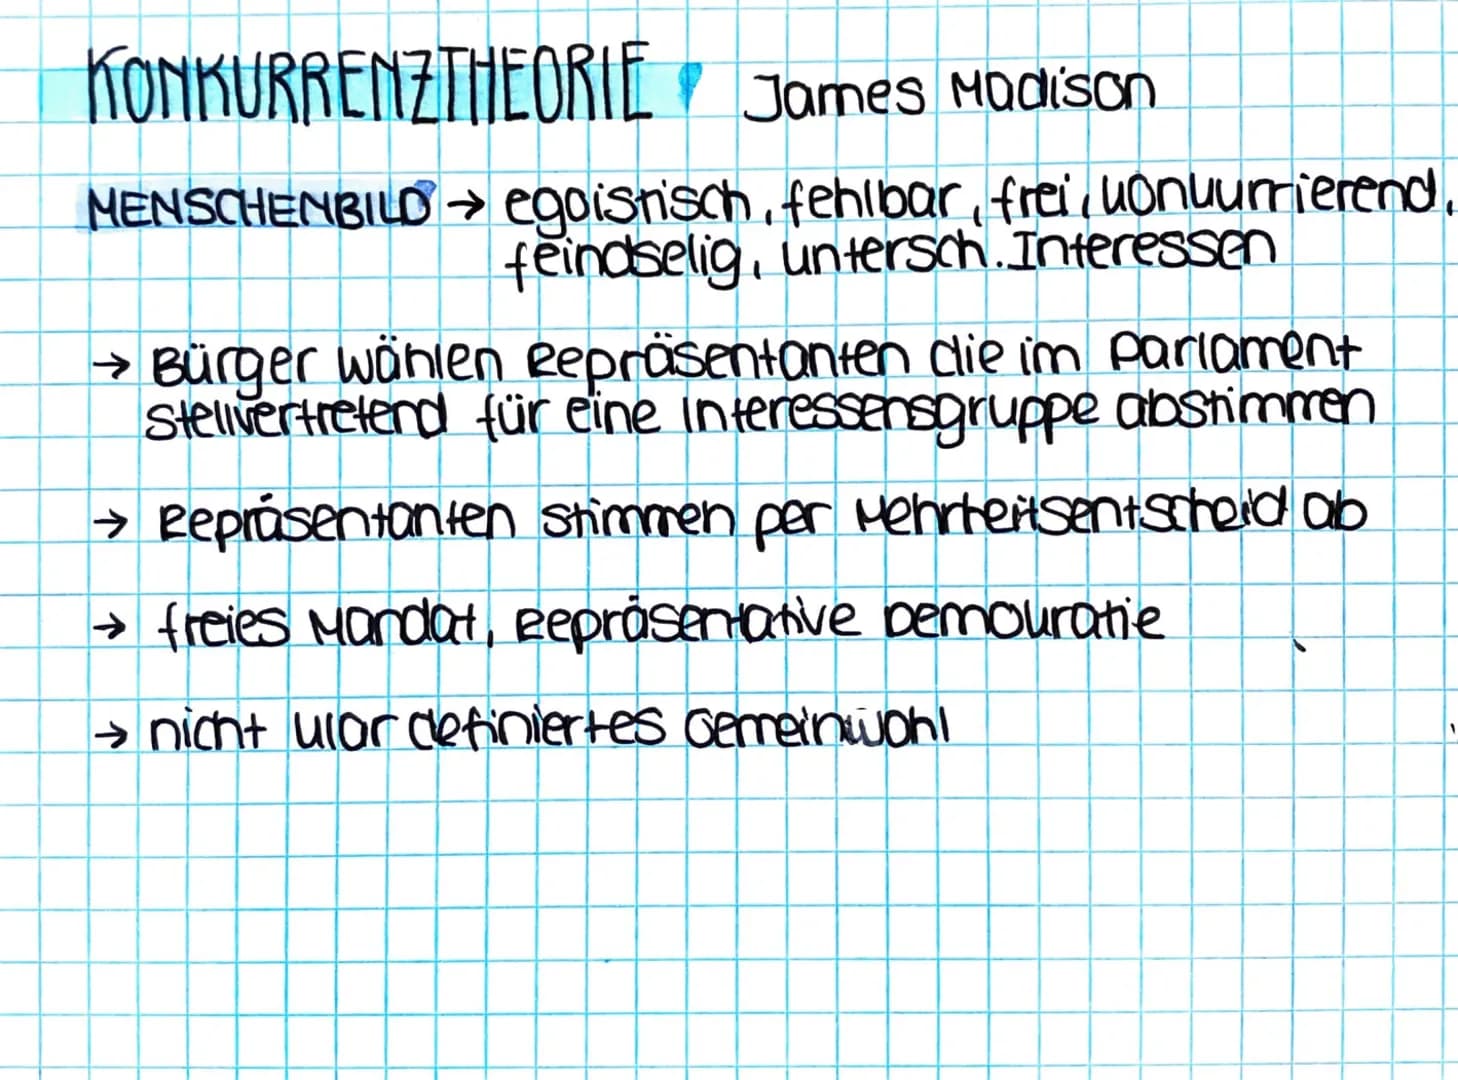 KONKURRENZTHEORIE James Madison
MENSCHENBILD → egoistisch, fehlbar, frei, konkurrierend,
feindselig, untersch. Interessen
→ Bürger wählen Repräsentanten die im Parlament
stellvertretend für eine Interessensgruppe abstimmen
→ Repräsentanten stimmen per Mehrheitsentscheid ab
→ freies Mandat, Repräsentative Demokratie
→ nicht klar definiertes Gemeinwohl